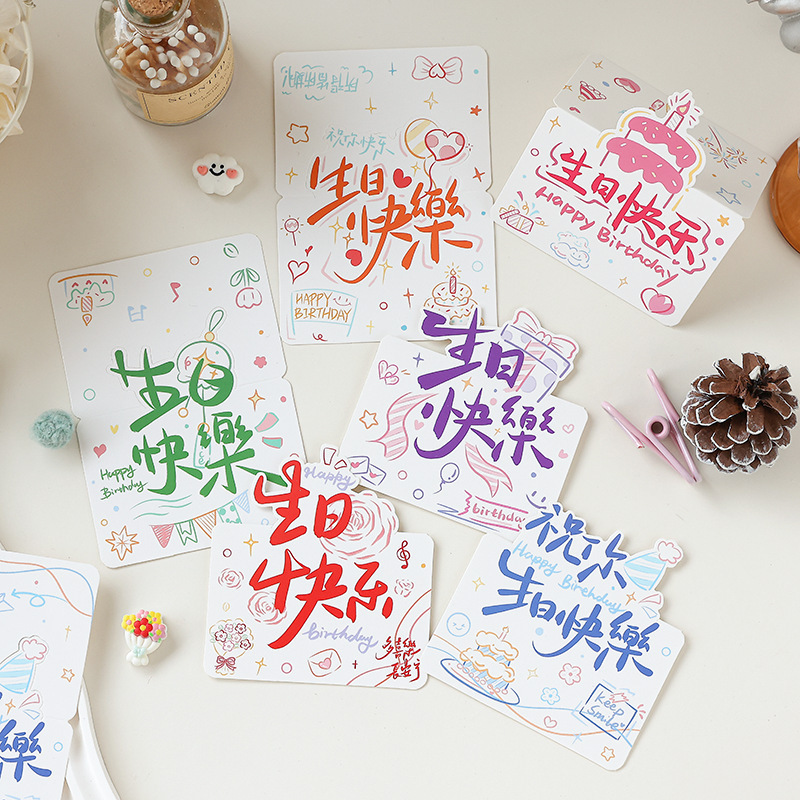 SCENTED
祝你快乐
生日
快樂
HAPPY
BIRTHDAY
生日快乐
Happy Birthday
生日
快樂
Happy
Birthday
生日
快樂
birthday
Happy
生日
快乐
birthday
多喜樂
長安寧
祝你
Happy Birthday
生日快樂
Keep
Smile
樂